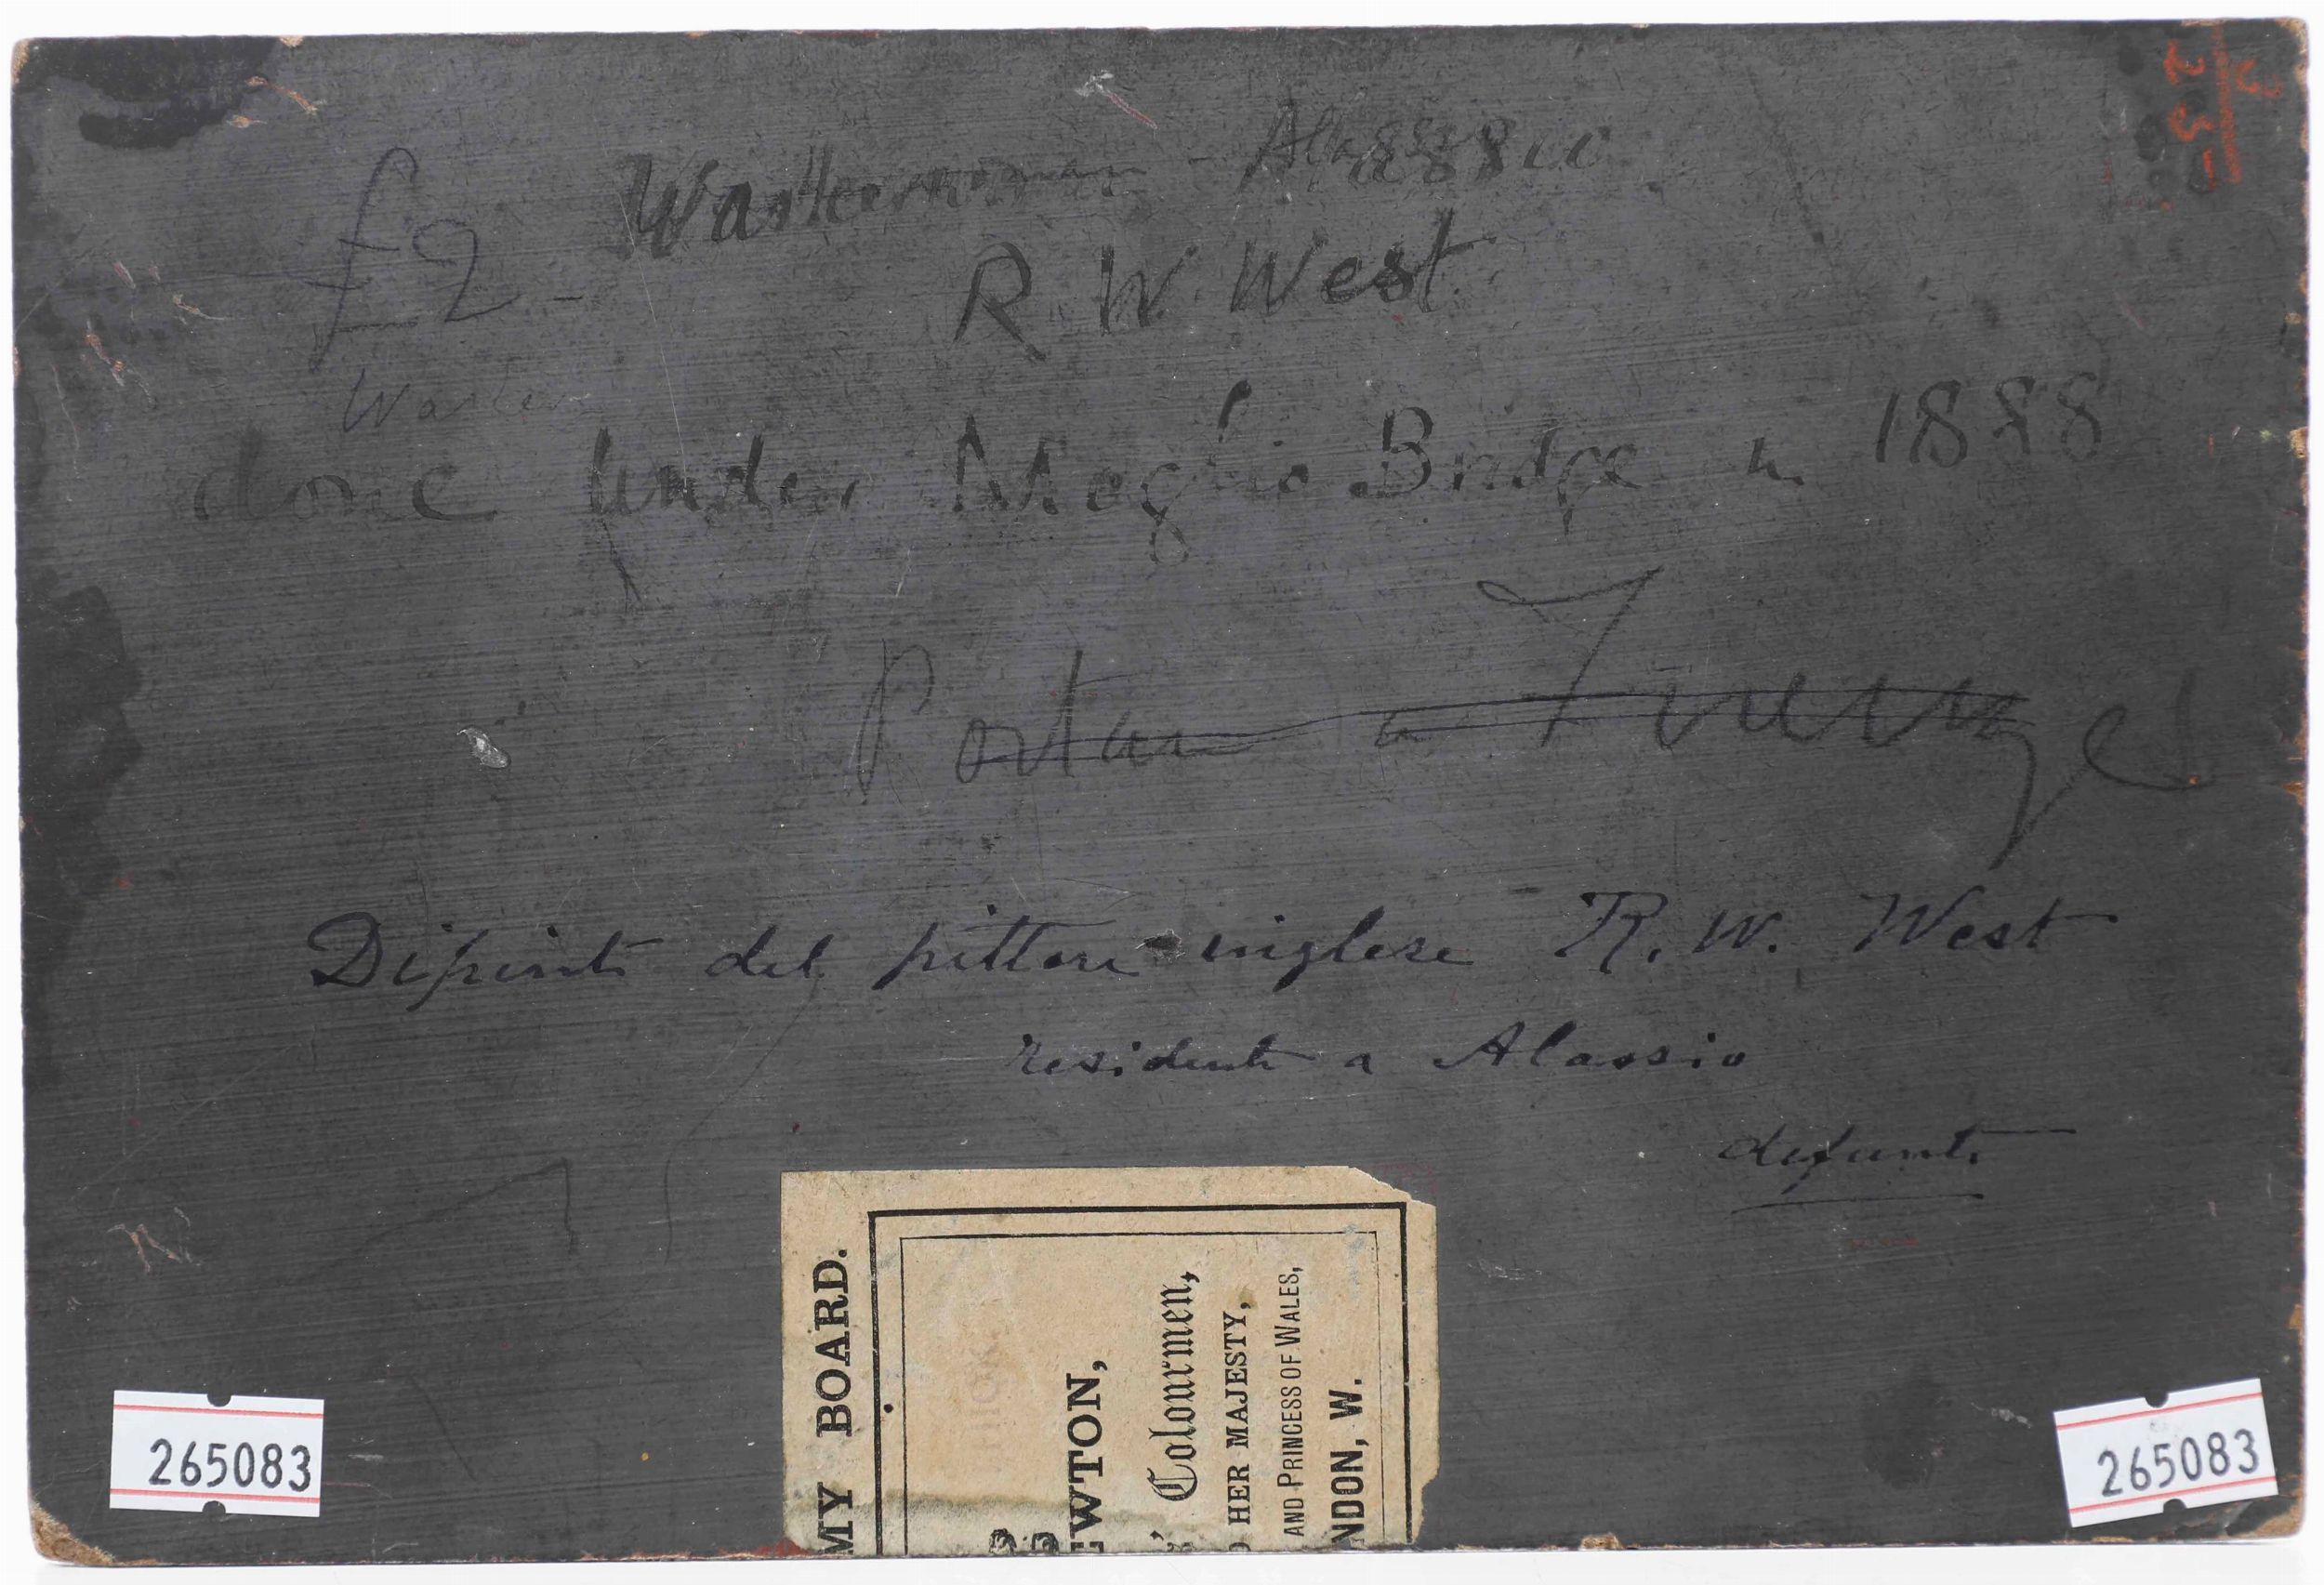 £2 -
Washerwoman - Alassio
R. W. West
done under Moglio Bridge in 1888
Portare a
Dipinto del pittore inglese R. W. West
residente a Alassio
defunto
MY BOARD.
EWTON,
Colourmen,
HER MAJESTY,
AND PRINCESS OF WALES,
NDON, W.
265083
265083